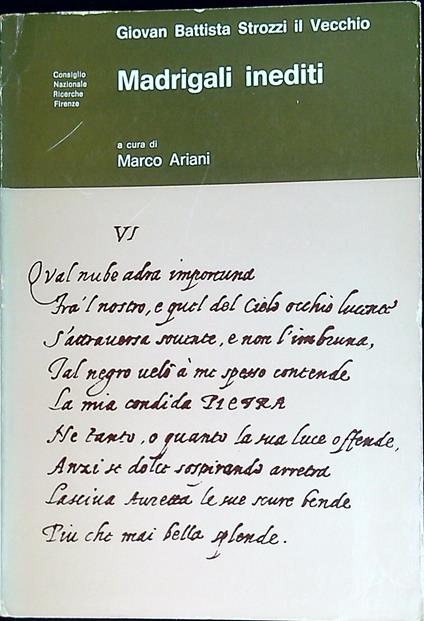 Giovan Battista Strozzi il Vecchio
Consiglio
Nazionale
Ricerche
Firenze
Madrigali inediti
a cura di
Marco Ariani
VI
Qual nube adra importuna
Fra'l nostro, e quel del Cielo occhio lucente
S'attraversa sovente, e non l'imbruna,
Tal negro velo à me spesso contende
La mia condida PIETRA
Ne tanto, o quanto la sua luce offende,
Anzi se dolce sospirando arretra
Lasciva Auretta le sue scure bende
Piu che mai bella splende.